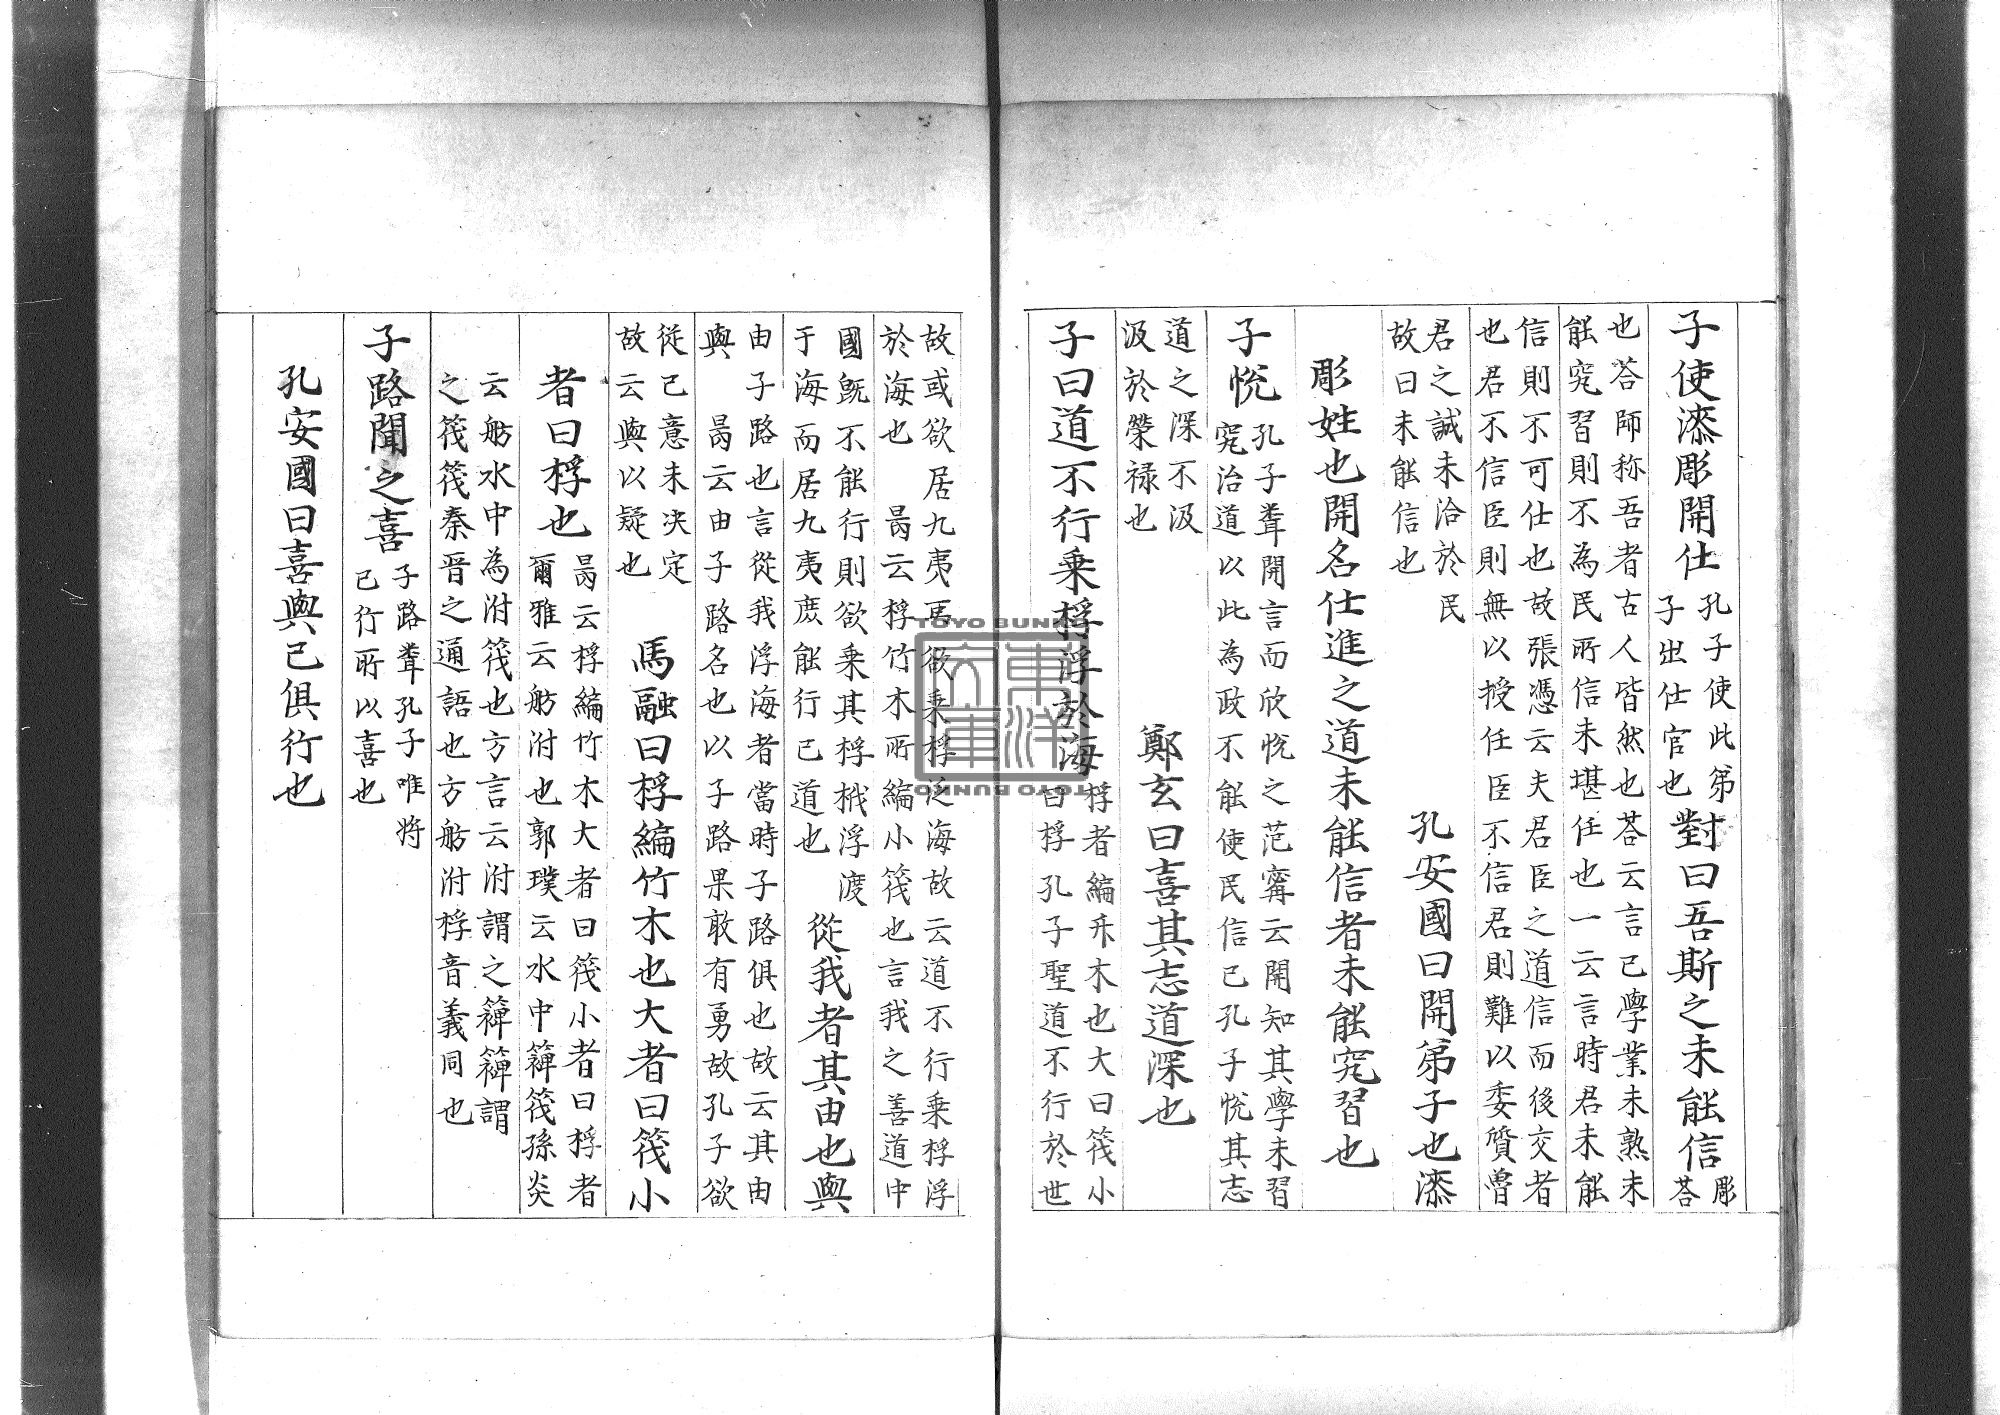 子使漆彫開仕孔子使此弟子出仕官也對曰吾斯之未能信彫荅
也荅師称吾者古人皆然也荅云言已學業未熟未
能究習則不為民所信未堪任也一云言時君未能
信則不可仕也故張憑云夫君臣之道信而後交者
也君不信臣則無以授任臣不信君則難以委質曾
君之誠未洽於民
故曰未能信也
孔安國曰開弟子也漆
彫姓也開名仕進之道未能信者未能究習也
子悅孔子聋開言而欣悅之范寗云開知其學未習
究治道以此為政不能使民信已孔子悅其志
道之深不汲
汲於榮禄也
鄭玄曰喜其志道深也
子曰道不行乗桴浮於海桴者編竹木也大曰筏小
曰桴孔子聖道不行於世
故或欲居九夷或欲乗桴泛海故云道不行乗桴浮
於海也 昺云桴竹木所編小筏也言我之善道中
國既不能行則欲乗其桴栰浮渡
于海而居九夷庶能行已道也
從我者其由也與
由子路也言從我浮海者當時子路俱也故云其由
與 昺云由子路名也以子路果敢有勇故孔子欲
従己意未决定
故云與以疑也
馬融曰桴編竹木也大者曰筏小
者曰桴也昺云桴編竹木大者曰筏小者曰桴者
爾雅云舫泭也郭璞云水中簰筏孫炎
云舫水中為泭筏也方言云泭謂之簰簰謂
之筏筏秦晋之通語也方舫泭桴音義同也
子路聞之喜子路聋孔子唯将
已行所以喜也
孔安國曰喜與己俱行也
TOYO BUNKO
東洋文庫
TOYO BUNKO